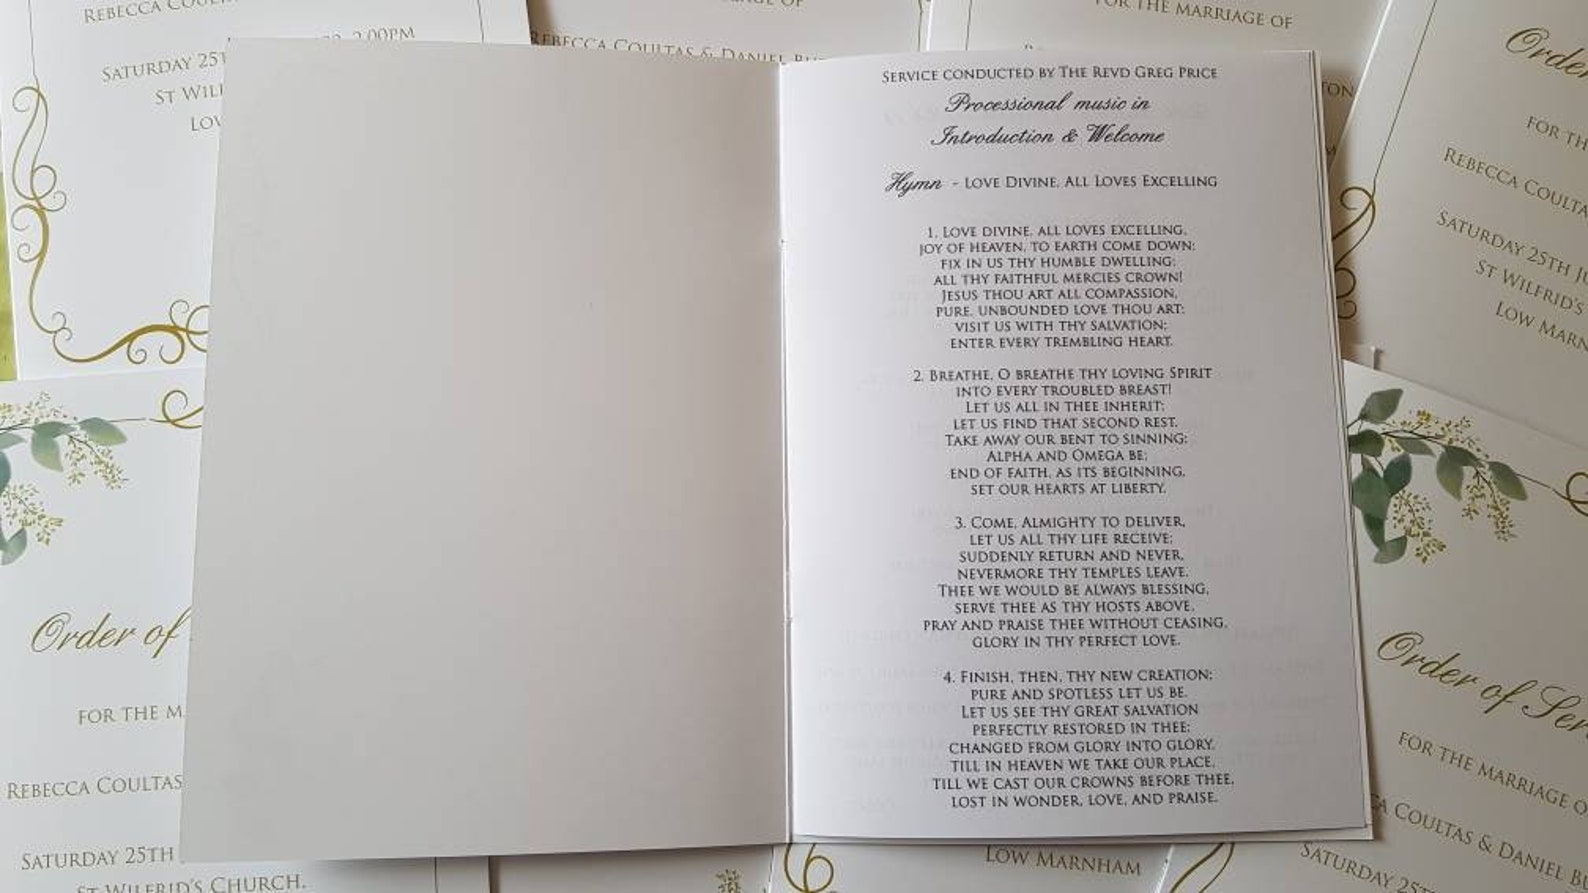 Rebecca
Saturday 25T
2.00PM
St Wilf
Lov
Rebecca Coultas & Daniel
for the marriage of
Order
for th
Rebecca Coulta
Saturday 25th
St Wilfrid's
Low Marn
Service conducted by The Revd Greg Price
Processional music in
Introduction & Welcome
Hymn - Love Divine, All Loves Excelling
1. Love divine, all loves excelling,
joy of heaven, to earth come down;
fix in us thy humble dwelling;
all thy faithful mercies crown!
Jesus thou art all compassion,
pure, unbounded love thou art;
visit us with thy salvation;
enter every trembling heart.
2. Breathe, O breathe thy loving Spirit
into every troubled breast!
Let us all in thee inherit;
let us find that second rest.
Take away our bent to sinning;
Alpha and Omega be;
end of faith, as its beginning,
set our hearts at liberty.
3. Come, Almighty to deliver,
let us all thy life receive;
suddenly return and never,
nevermore thy temples leave.
Thee we would be always blessing,
serve thee as thy hosts above,
pray and praise thee without ceasing,
glory in thy perfect love.
4. Finish, then, thy new creation;
pure and spotless let us be.
Let us see thy great salvation
perfectly restored in thee;
changed from glory into glory,
till in heaven we take our place,
till we cast our crowns before thee,
lost in wonder, love, and praise.
Order of
for the m
Rebecca Coultas
Saturday 25th
St Wilfrid's Church,
Low Marnham
Order of Ser
for the marriage o
a Coultas & Daniel B
Saturday 25th